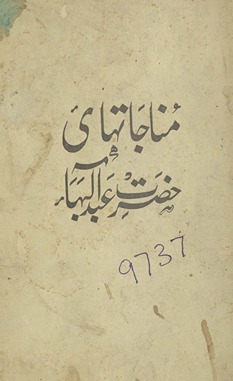 مناجاتهای
حضرت عبدالبهاء
9737